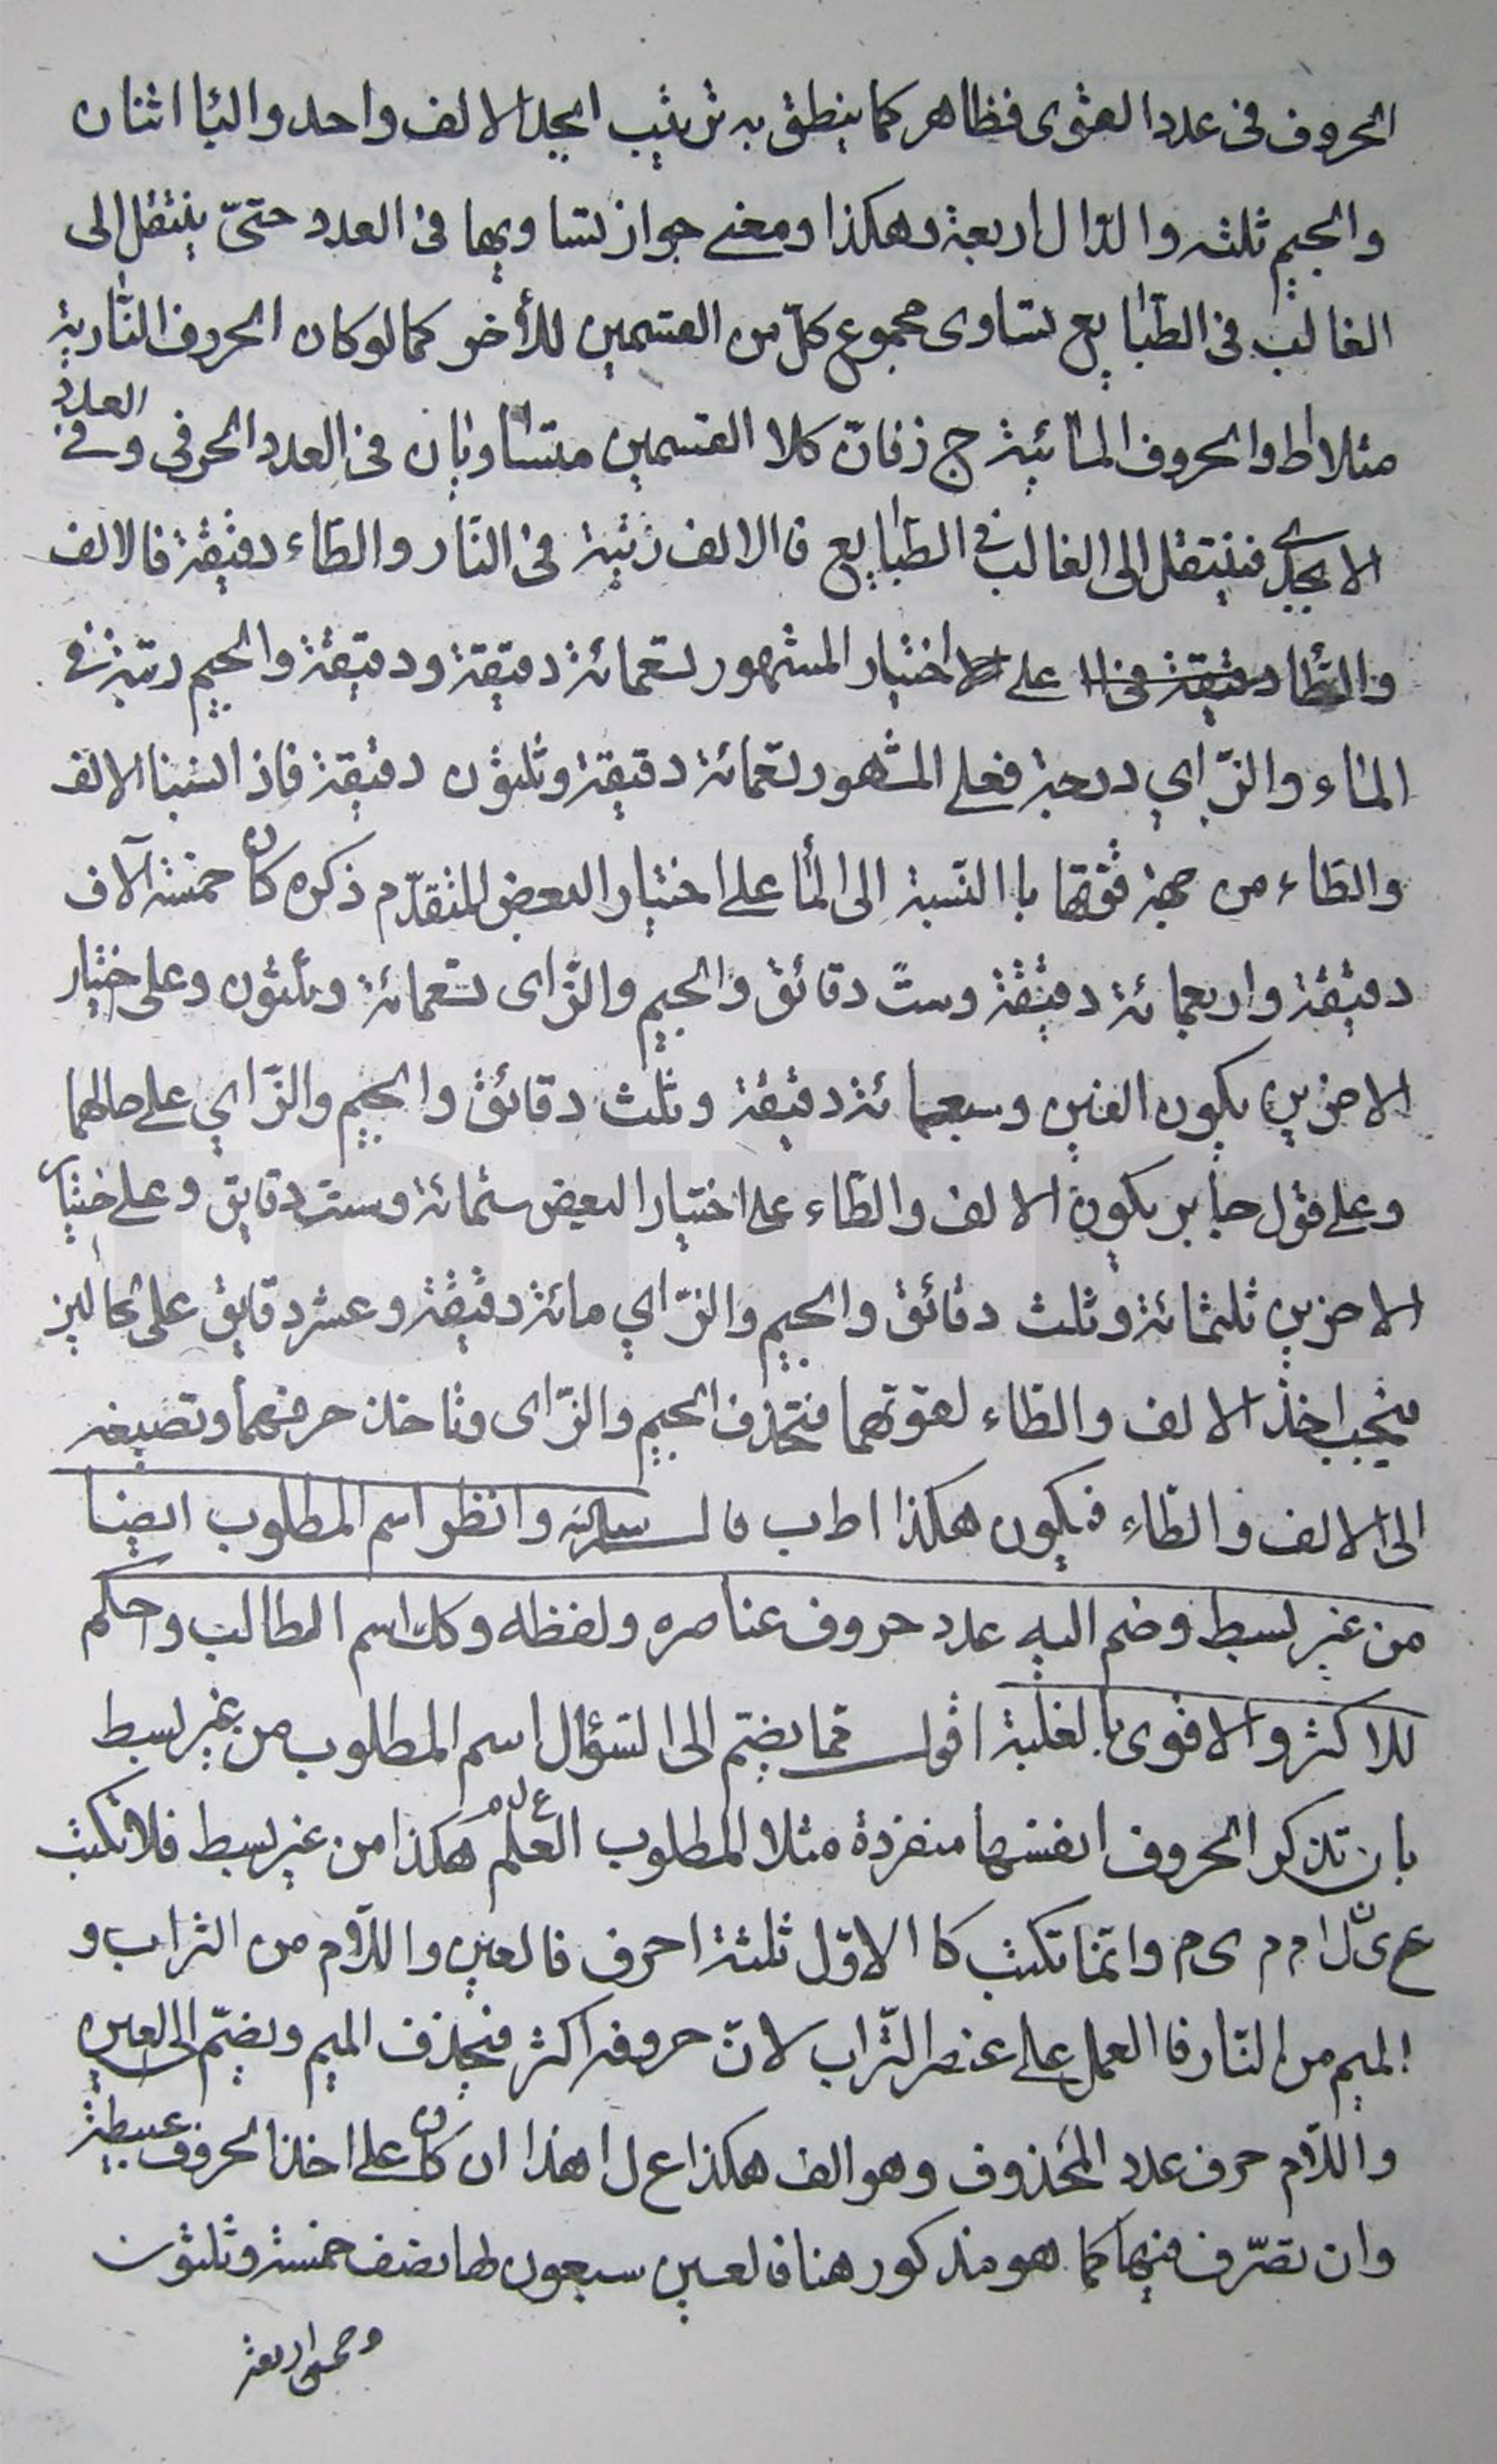 الحروف فى عدد القوى فظاهر كما ينطق به ترتيب ابجد الالف واحد والبا اثنان
والجيم ثلثه والدّال اربعة وهكذا ومعنے جواز تساويها فى العدد حتىّ ينتقل الى
الغالب فى الطّبايع تساوى مجموع كلّ من القسمين للأخر كما لو كان الحروف النّارية
مثلا اط والحروف المائية ج ز فانّ كلا القسمين متساويان فى العدد الحرفى وفے العدد
الابجدى فينتقل الى الغالب فى الطبايع فالالف رتبة فى النّار والطاء دقيقة فالالف
والطّا دقيقة فى ا على اختيار المشهور تسعمائة دقيقة ودقيقة والجيم رتبة فى
الماء والزّاي درجة فعلى المشهور تسعمائة دقيقة وثلثون دقيقة فاذ انسبنا الالف
والطاء من جهة قوّتها با النّسبة الى المأ على اختيار البعض المتقدّم ذكره كان خمسة آلاف
دقيقة واربعمائة دقيقة وستّ دقائق والجيم والزّاى تسعمائة وثلثون وعلى اختيار
الاخرين يكون الفين وسبعمائة دقيقة وثلث دقائق والجيم والزّاي على حالهما
وعلى قول جابر يكون الالف والطاء على اختيار البعض ستمائة وست دقايق وعلى اختيار
الاخرين ثلثمائة وثلث دقائق والجيم والزّاي مائة دقيقة وعشر دقايق على الحالين
فيجب اخذ الالف والطاء لقوتهما فتحذف الجيم والزّاى وتاخذ حرفهما وتضيفه
الى الالف والطاء فيكون هكذا ا ط ب قال سلمه وانظر اسم المطلوب ايضا
من غير بسط وضم اليه عدد حروف عناصره ولفظه وكك اسم الطالب واحكم
للاكثر والاقوى بالغلبة اقول مما يضم الى السّؤال اسم المطلوب من غير بسط
بان تذكر الحروف انفسها منفردة مثلا المطلوب العلم ع ل م هكذا من غير بسط فلا تكتب
ع ى ن ل ا م م ى م وانّما تكتب كا الاوّل ثلثة احرف فالعين واللّام من التراب و
الميم من النّار فا العمل على عنصر التّراب لانّ حروفه اكثر فتحذف الميم وتضمّ الى العين
واللّام حرف عدد المحذوف وهو الف هكذا ع ل ا هذا ان كان على اخذ الحروف عبيطة
وان تصّرف فيها كما هو مذكور هنا فالعين سبعون لها نصف خمسة وثلثون
وخمس اربعة